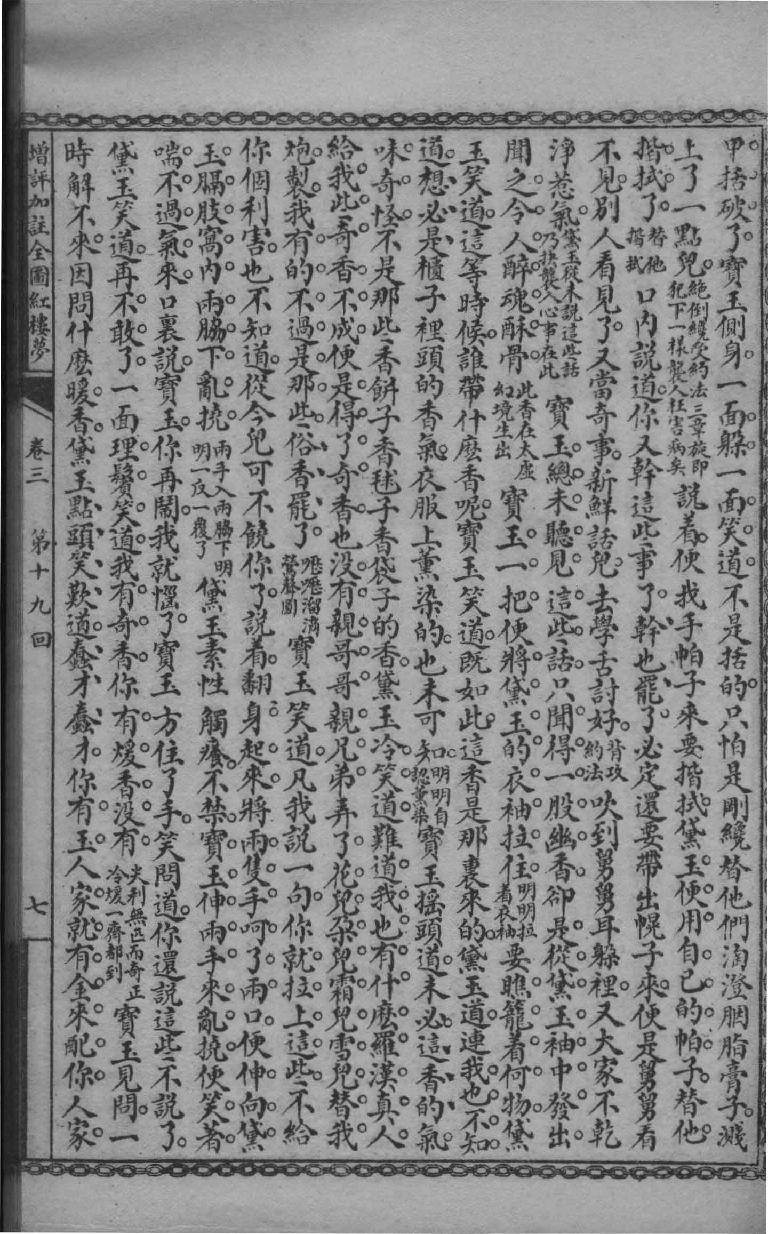 甲括破了寶玉側身一面躱一面笑道不是括的只怕是剛纔替他們淘澄胭脂膏子濺
上了一點兒絕倒纔受約法三章旋即犯下一樣襲人枉害病矣説着便找手帕子來要揩拭黛玉便用自已的帕子替他
揩拭了替他揩拭口內説道你又幹這些事了幹也罷了必定還要帶出幌子來便是舅舅看
不見別人看見了又當奇事新鮮話兒去學舌討好背攻約法吹到舅舅耳躱裡又大家不乾
淨惹氣黛玉從未說這些話乃挾襲人心事在此寶玉總未聽見這些話只聞得一股幽香卻是從黛玉袖中發出
聞之令人醉魂酥骨此香在太虛幻境生出寶玉一把便將黛玉的衣袖拉住明明拉着衣袖要瞧籠着何物黛
玉笑道這等時候誰帶什麽香呢寶玉笑道旣如此這香是那裏來的黛玉道連我也不知
道想必是櫃子裡頭的香氣衣服上薰染的也未可知口明明自認薰染寶玉摇頭道未必這香的氣
味奇怪不是那些香餅子香毬子香袋子的香黛玉冷笑道難道我也有什麽羅漢真人
給我些奇香不成便是得了奇香也没有親哥哥親兄弟弄了花兒朶兒霜兒雪兒替我
炮製我有的不過是那些俗香罷了嚦嚦溜滴鶯聲圓寶玉笑道凡我説一句你就拉上這些不給
你個利害也不知道從今兒可不饒你了説着翻身起來將兩隻手呵了兩口便伸向黛
玉膈肢窩內兩脇下亂撓兩手入兩脇下明明一反一覆了黛玉素性觸癢不禁寶玉伸兩手來亂撓便笑着
喘不過氣來口裏説寶玉你再鬧我就惱了寶玉方住了手笑問道你還説這些不説了
黛玉笑道再不敢了一面理鬢笑道我有奇香你有煖香没有尖利無匹而奇正冷煖一齊都到寶玉見問一
時解不來因問什麽暖香黛玉點頭笑歎道蠢才蠢才你有玉人家就有金來配你人家
增評加註全圖紅樓夢
卷三
第十九回
七